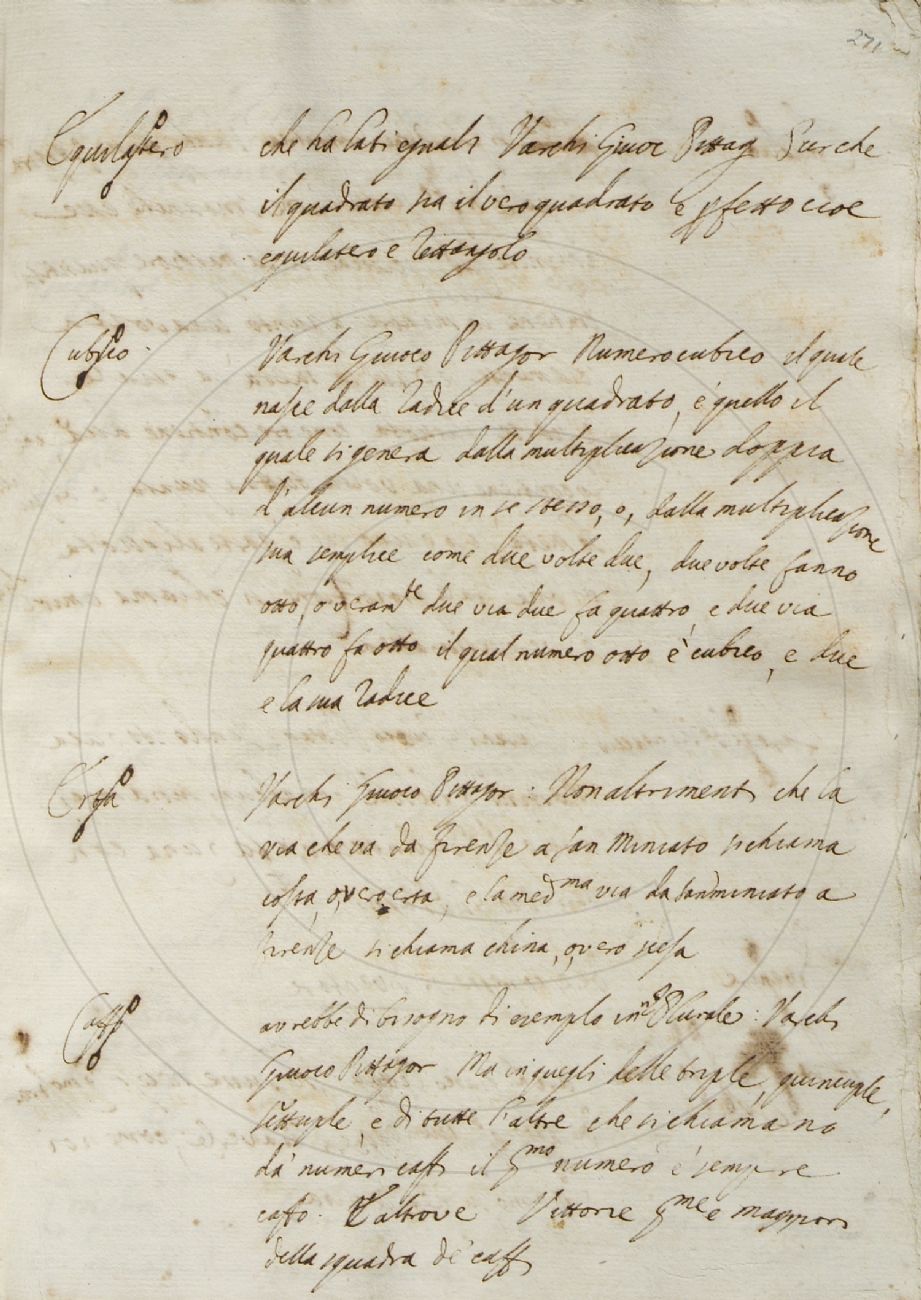 271
Equilatero che ha lati eguali Varchi Giuoc Pittag Pur che
il quadrato sia il vero quadrato e pfetto cioe
equilatero e Rettangolo
Cubico Varchi Giuoco Pittagor Numero cubico il quale
nasce dalla Radice d'un quadrato, é quello il
quale si genera dalla multiplicazione doppia
d'alcun numero in se stesso, o, dalla multiplicazione
sua semplice come due volte due, due volte fanno
otto, o veram.te due via due fa quattro, e due via
quattro fa otto il qual numero otto è cubico, e due
e la sua Radice
Erta Varchi Giuoco Pittagor: Non altrimenti che la
via che va da firenze a San Miniato si chiama
costa, o, vero erta, e la med.ma via da San miniato a
firenze si chiama china, o, vero scesa
Caffo avrebbe di bisogno di esempio in n.o Plurale: Varchi
Giuoco Pittagor Ma in quegli delle triple, quincuple,
settuple, e di tutte l'altre che si chiamano
da numeri caffi il p.mo numero é sempre
caffo. E altrove Vittorie p.me e maggiori
della squadra de caffi